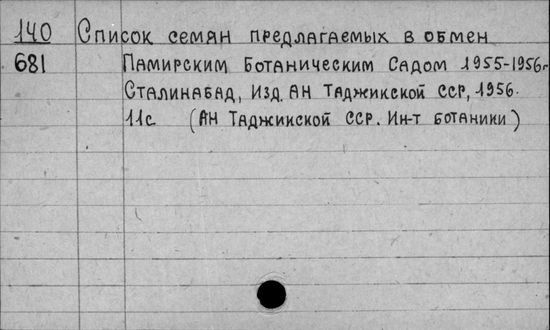 140 Список семян предлагаемых в обмен
681 Памирским Ботаническим Садом 1955-1956г
Сталинабад, Изд. АН Таджикской ССР, 1956.
11с (АН Таджикской ССР. Ин-т ботаники)